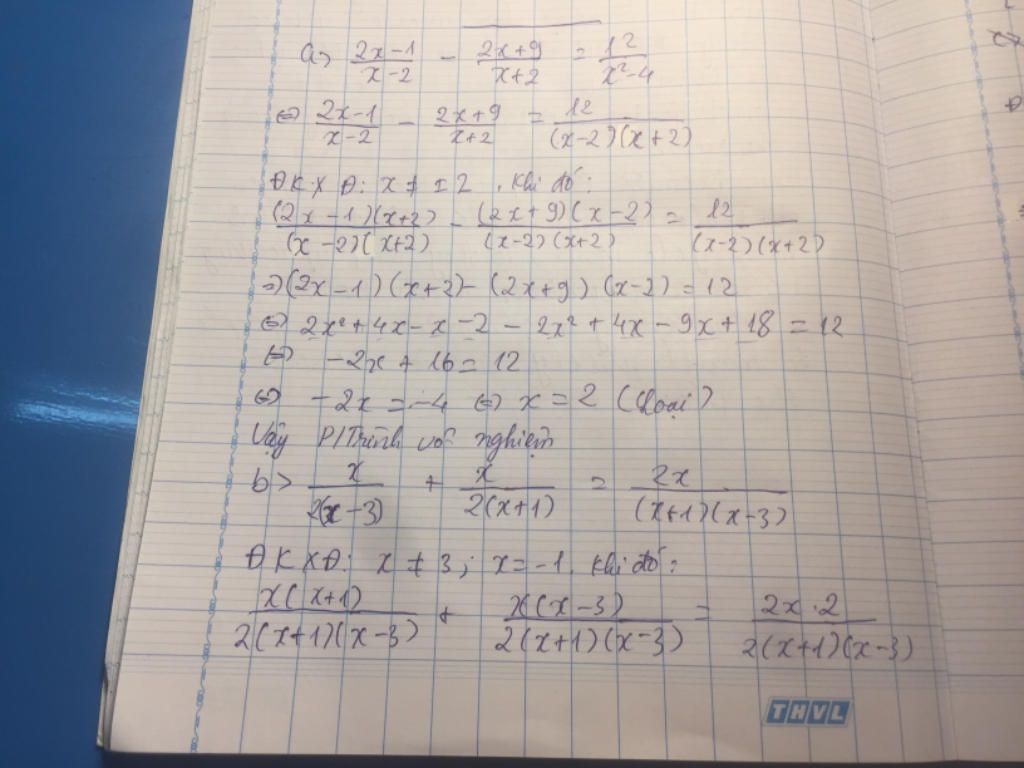 a> (2x-1)/(x-2) - (2x+9)/(x+2) = 12/(x²-4)
⇔ (2x-1)/(x-2) - (2x+9)/(x+2) = 12/((x-2)(x+2))
ĐKXĐ: x ≠ ±2. Khi đó:
((2x-1)(x+2))/((x-2)(x+2)) - ((2x+9)(x-2))/((x-2)(x+2)) = 12/((x-2)(x+2))
⇒ (2x-1)(x+2) - (2x+9)(x-2) = 12
⇔ 2x²+4x-x-2-2x²+4x-9x+18 = 12
⇔ -2x+16 = 12
⇔ -2x = -4 ⇔ x = 2 (Loại)
Vậy P/Trình vô nghiệm
b> x/(2(x-3)) + x/(2(x+1)) = 2x/((x+1)(x-3))
ĐKXĐ: x ≠ 3; x = -1. Khi đó:
(x(x+1))/(2(x+1)(x-3)) + (x(x-3))/(2(x+1)(x-3)) = (2x.2)/(2(x+1)(x-3))
THVL